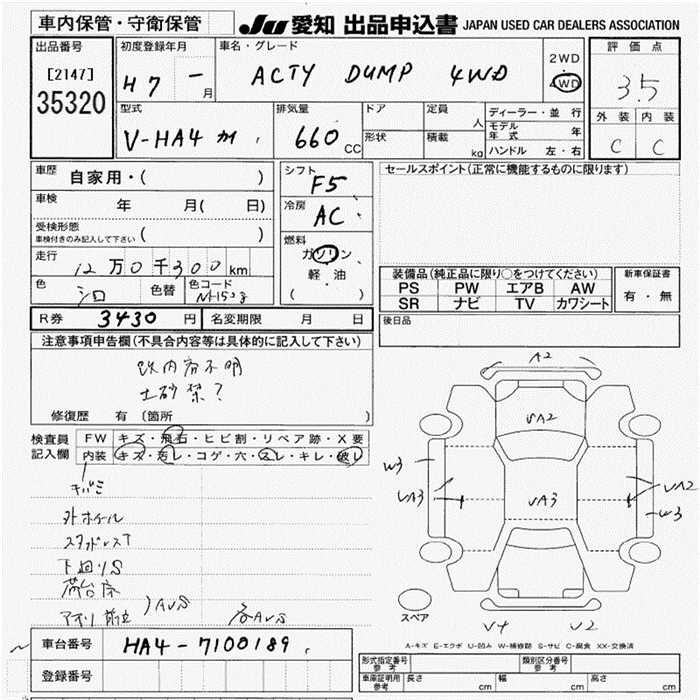 車内保管・守衛保管
JU 愛知 出品申込書 JAPAN USED CAR DEALERS ASSOCIATION
出品番号
[2147]
35320
初度登録年月
H7 - 月
車名・グレード
ACTY DUMP 4WD
2WD
4WD
評価点
3.5
外装 内装
C C
型式
V-HA4
排気量
660 CC
ドア
形状
定員 人
積載 kg
ディーラー・並行
モデル年式 年
ハンドル 左・右
車歴
自家用・( )
車検
年 月( 日)
受検形態
車検付きのみ記入して下さい ( )
走行
12万0千300km
色
シロ
色替
色コード
シフト
F5
冷房
AC
燃料
ガソリン
軽・油
( )
セールスポイント(正常に機能するものに限ります)
装備品(純正品に限り○をつけてください)
PS PW エアB AW
SR ナビ TV カワシート
新車保証書
有・無
R券 3430円
名変期限 月 日
後日品
注意事項申告欄(不具合内容等は具体的に記入して下さい)
内容不明
土砂禁?
修復歴 有 (箇所 )
検査員
記入欄
FW キズ・飛石・ヒビ割・リペア跡・X要
内装 キズ・汚レ・コゲ・穴・スレ・キレ・破レ
キバミ
外ホイール
スタッドレスT
下廻りS
荷台床
アオリ
AUS
各AUS
A2
UA2
W3
UA3
UA3
UA2
W3
スペア
U4
U2
A-キズ E-エクボ U-凹み W-補修跡 S-サビ C-腐食 XX-交換済
車台番号 HA4-7100189
登録番号
形式指定番号
参考
類別区分番号
参考
車庫証明用
参考
長さ cm
幅 cm
高さ cm